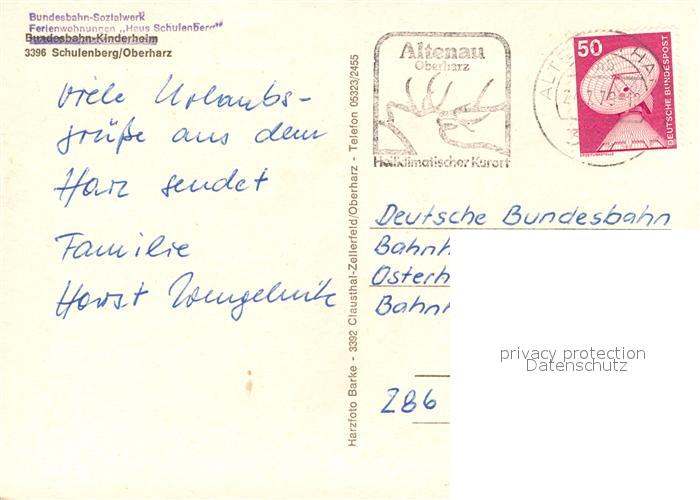 Bundesbahn-Sozialwerk
Ferienwohnungen „Haus Schulenberg"
Bundesbahn-Kinderheim
3396 Schulenberg/Oberharz
Viele Urlaubs-
grüße aus dem
Harz sendet
Familie
Horst
Harzfoto Barke - 3392 Clausthal-Zellerfeld/Oberharz - Telefon 05323/2455
Altenau
Oberharz
Heilklimatischer Kurort
50
DEUTSCHE BUNDESPOST
Deutsche Bundesbahn
Bahnh
Osterh
Bahnh
286
privacy protection
Datenschutz